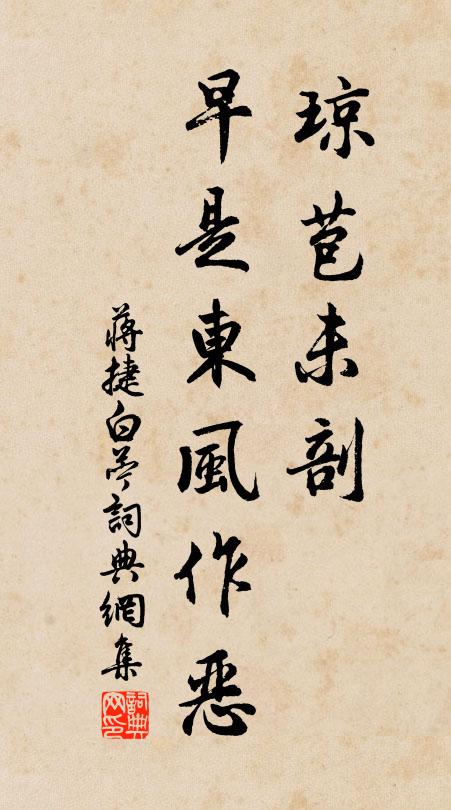 琼苞未剖
早是東風作惡
蔣捷白苧詞典網集
詞典
网印